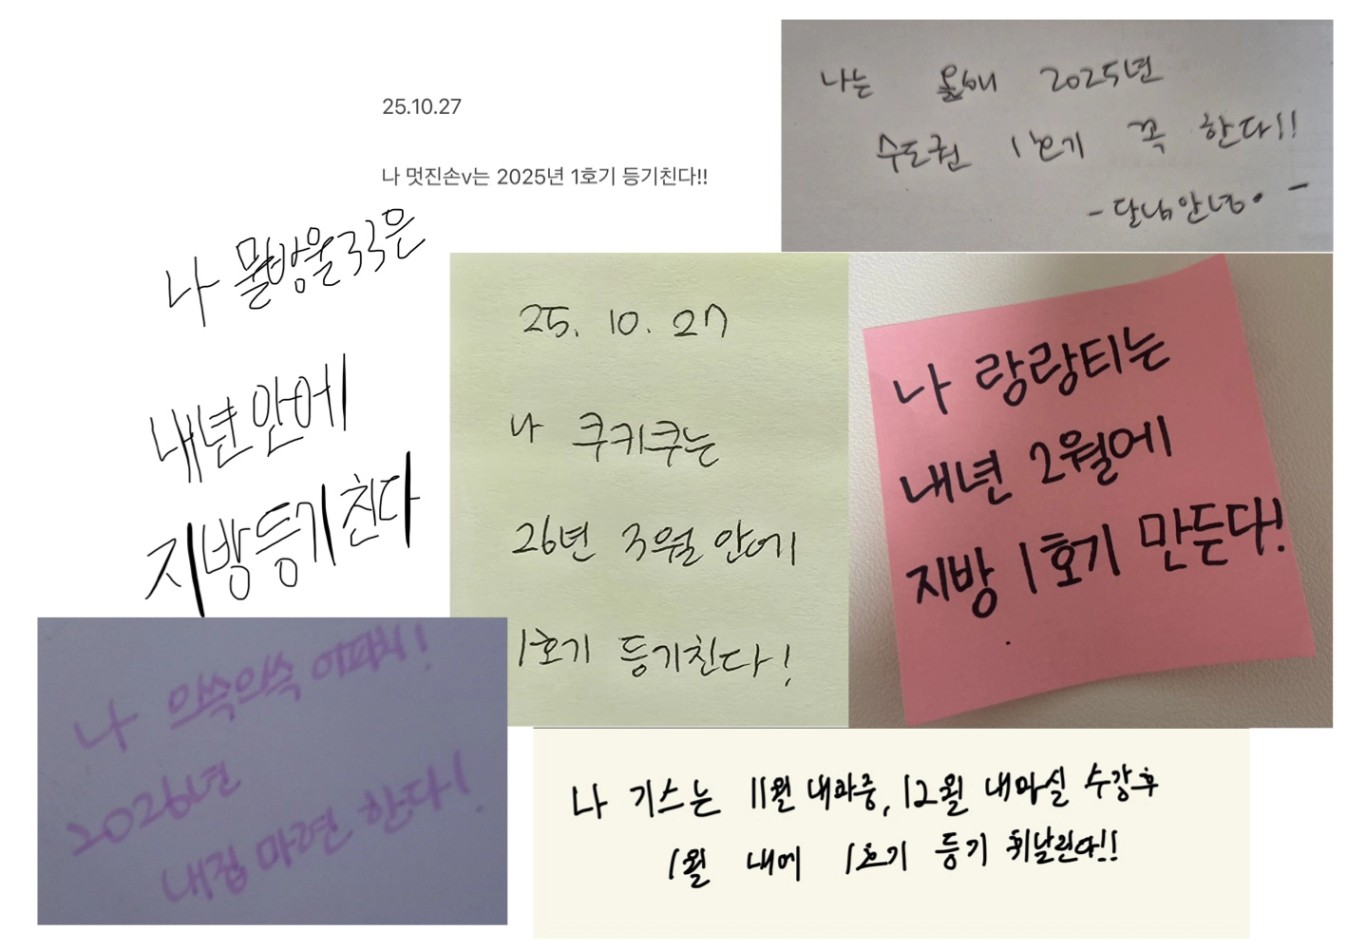 25.10.27
나 멋진손v는 2025년 1호기 등기친다!!
나는 올해 2025년
수도권 1호기 꼭 한다!!
-달님안녕. -
나 물방울33은
내년안에
지방등기친다
25. 10. 27
나 쿠키쿠는
26년 3월 안에
1호기 등기친다!
나 랑랑티는
내년 2월에
지방 1호기 만든다!
나 의쓱의쓱
2026년
내집 마련 한다!
나 기스는 11월 내하중, 12월 내마실 수강후
1월 내에 1호기 등기 휘날린다!!